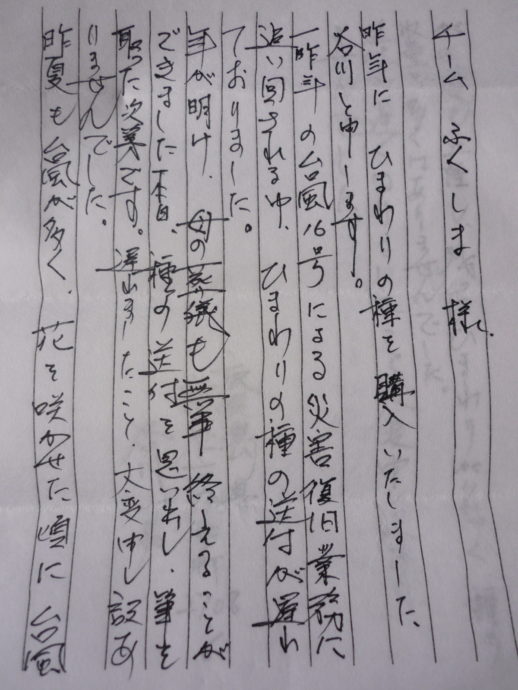 チーム ふくしま 様
昨年に ひまわりの種を 購入いたしました
谷川と申します。
一昨年の台風16号による災害復旧業務に
追い回される中、ひまわりの種の送付が遅れ
ておりました。
年が明け、母の葬儀も無事終えることが
できました本日、種の送付を思い出し、筆を
取った次第です。遅れましたこと、大変申し訳あ
りませんでした。
昨夏も台風が多く、花を咲かせた頃に台風